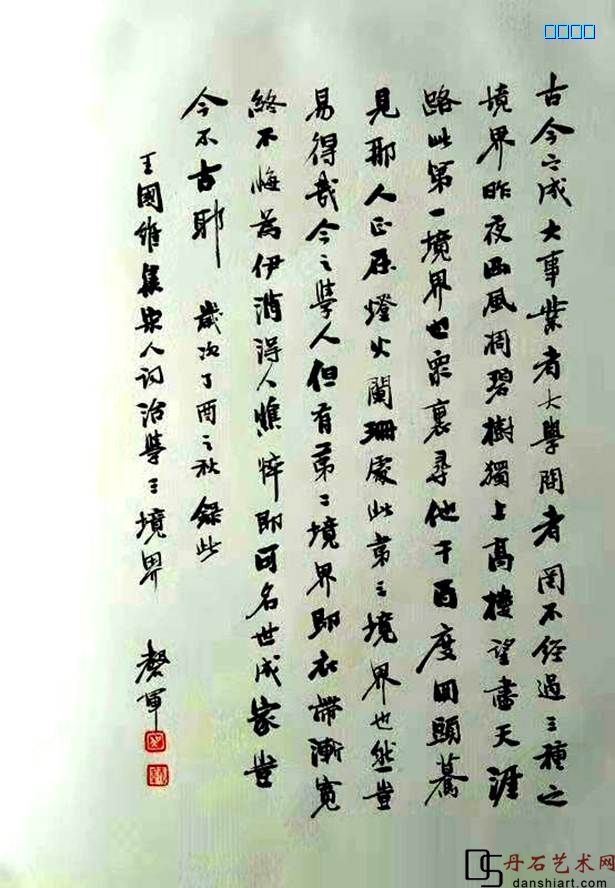 古今之成大事業者大學問者罔不經過三種之
境界昨夜西風凋碧樹獨上高樓望盡天涯
路此第一境界也眾裏尋他千百度回頭驀
見那人正在燈火闌珊處此第三境界也然豈
易得哉今之學人但有第二境界即衣帶漸寬
終不悔為伊消得人憔悴即可名世成家豈
今不古耶 歲次丁酉之秋錄此
王國維集宋人詞治學三境界 軍
DS 丹石艺术网
danshiart.com